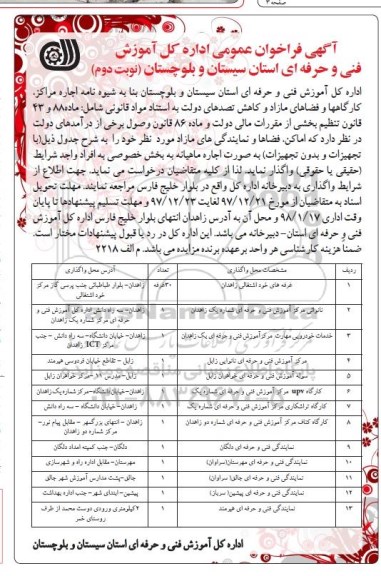 صفحه ۳
آگهی فراخوان عمومی اداره کل آموزش
فنی و حرفه ای استان سیستان و بلوچستان (نوبت دوم)
اداره کل آموزش فنی و حرفه ای استان سیستان و بلوچستان بنا به شیوه نامه اجاره مراکز،
کارگاهها و فضاهای مازاد و کاهش تصدیهای دولت به استناد مواد قانونی شامل: ماده۸۸ و ۴۳
قانون تنظیم بخشی از مقررات مالی دولت و ماده ۸۶ قانون وصول برخی از درآمدهای دولت
در نظر دارد که اماکن، فضاها و نمایندگی های مازاد مورد نظر خود را به شرح جدول ذیل(با
تجهیزات و بدون تجهیزات) به صورت اجاره ماهیانه به بخش خصوصی به افراد واجد شرایط
(حقیقی یا حقوقی) واگذار نماید. لذا از کلیه متقاضیان درخواست می نماید. جهت اطلاع از
شرایط واگذاری به دبیرخانه اداره کل واقع در بلوار خلیج فارس مراجعه نمایند. مهلت تحویل
اسناد به متقاضیان از مورخ ۹۷/۱۲/۲۱ لغایت ۹۷/۱۲/۲۳ و مهلت تسلیم پیشنهادها تا پایان
وقت اداری ۹۸/۱/۱۷ و محل آن به آدرس زاهدان انتهای بلوار خلیج فارس اداره کل آموزش
فنی و حرفه ای استان- دبیرخانه می باشد. این اداره کل در رد یا قبول پیشنهادات مختار است.
ضمناً هزینه کارشناسی هر واحد برعهده برنده مزایده می باشد. م الف ۲۲۱۸
ردیف مشخصات محل واگذاری تعداد آدرس محل واگذاری
۱ غرفه های خود اشتغالی زاهدان ۳۰غرفه زاهدان- بلوار طباطبائی جنب پرسی گاز مرکز خود اشتغالی
۲ نانوائی مرکز آموزش فنی و حرفه ای شماره یک زاهدان ۱ زاهدان- سه راه دانش اداره کل آموزش فنی و حرفه ای مرکز شماره یک زاهدان
۳ خدمات خودرویی مهارت مرکز آموزش فنی و حرفه ای یک زاهدان ۱ زاهدان- خیابان دانشگاه- سه راه دانش - جنب مرکز ICT زاهدان
۴ مرکز آموزش فنی و حرفه ای نانوایی زابل ۱ زابل - تقاطع خیابان فردوسی هیرمند
۵ سوله آموزش فنی و حرفه ای خواهران زابل ۱ زابل- مرکز خواهران زابل
۶ کارگاه upv مرکز آموزش فنی و حرفه ای شماره یک ۱ زاهدان-خیابان دانشگاه-مرکز شماره یک زاهدان
۷ کارگاه تراشکاری مرکز آموزش فنی و حرفه ای شماره یک ۱ زاهدان- خیابان دانشگاه - سه راه دانش
۸ کارگاه کناف مرکز آموزش فنی و حرفه ای شماره دو زاهدان ۱ زاهدان - انتهای بزرگمهر - مقابل پیام نور- مرکز شماره دو زاهدان
۹ نمایندگی فنی و حرفه ای دلگان ۱ دلگان- جنب کمیته امداد دلگان
۱۰ نمایندگی فنی و حرفه ای مهرستان(سراوان) ۱ مهرستان- مقابل اداره راه و شهرسازی
۱۱ نمایندگی فنی و حرفه ای جالق( سراوان) ۱ جالق-پشت مدارس آموزش شهر جالق
۱۲ نمایندگی فنی و حرفه ای پیشین( سرباز) ۱ پیشین- ابتدای شهر- جنب اداره بهداشت
۱۳ نمایندگی فنی و حرفه ای قیرمند ۱ ۲کیلومتری ورودی دوست محمد از طرف روستای خمر
اداره کل آموزش فنی و حرفه ای استان سیستان و بلوچستان